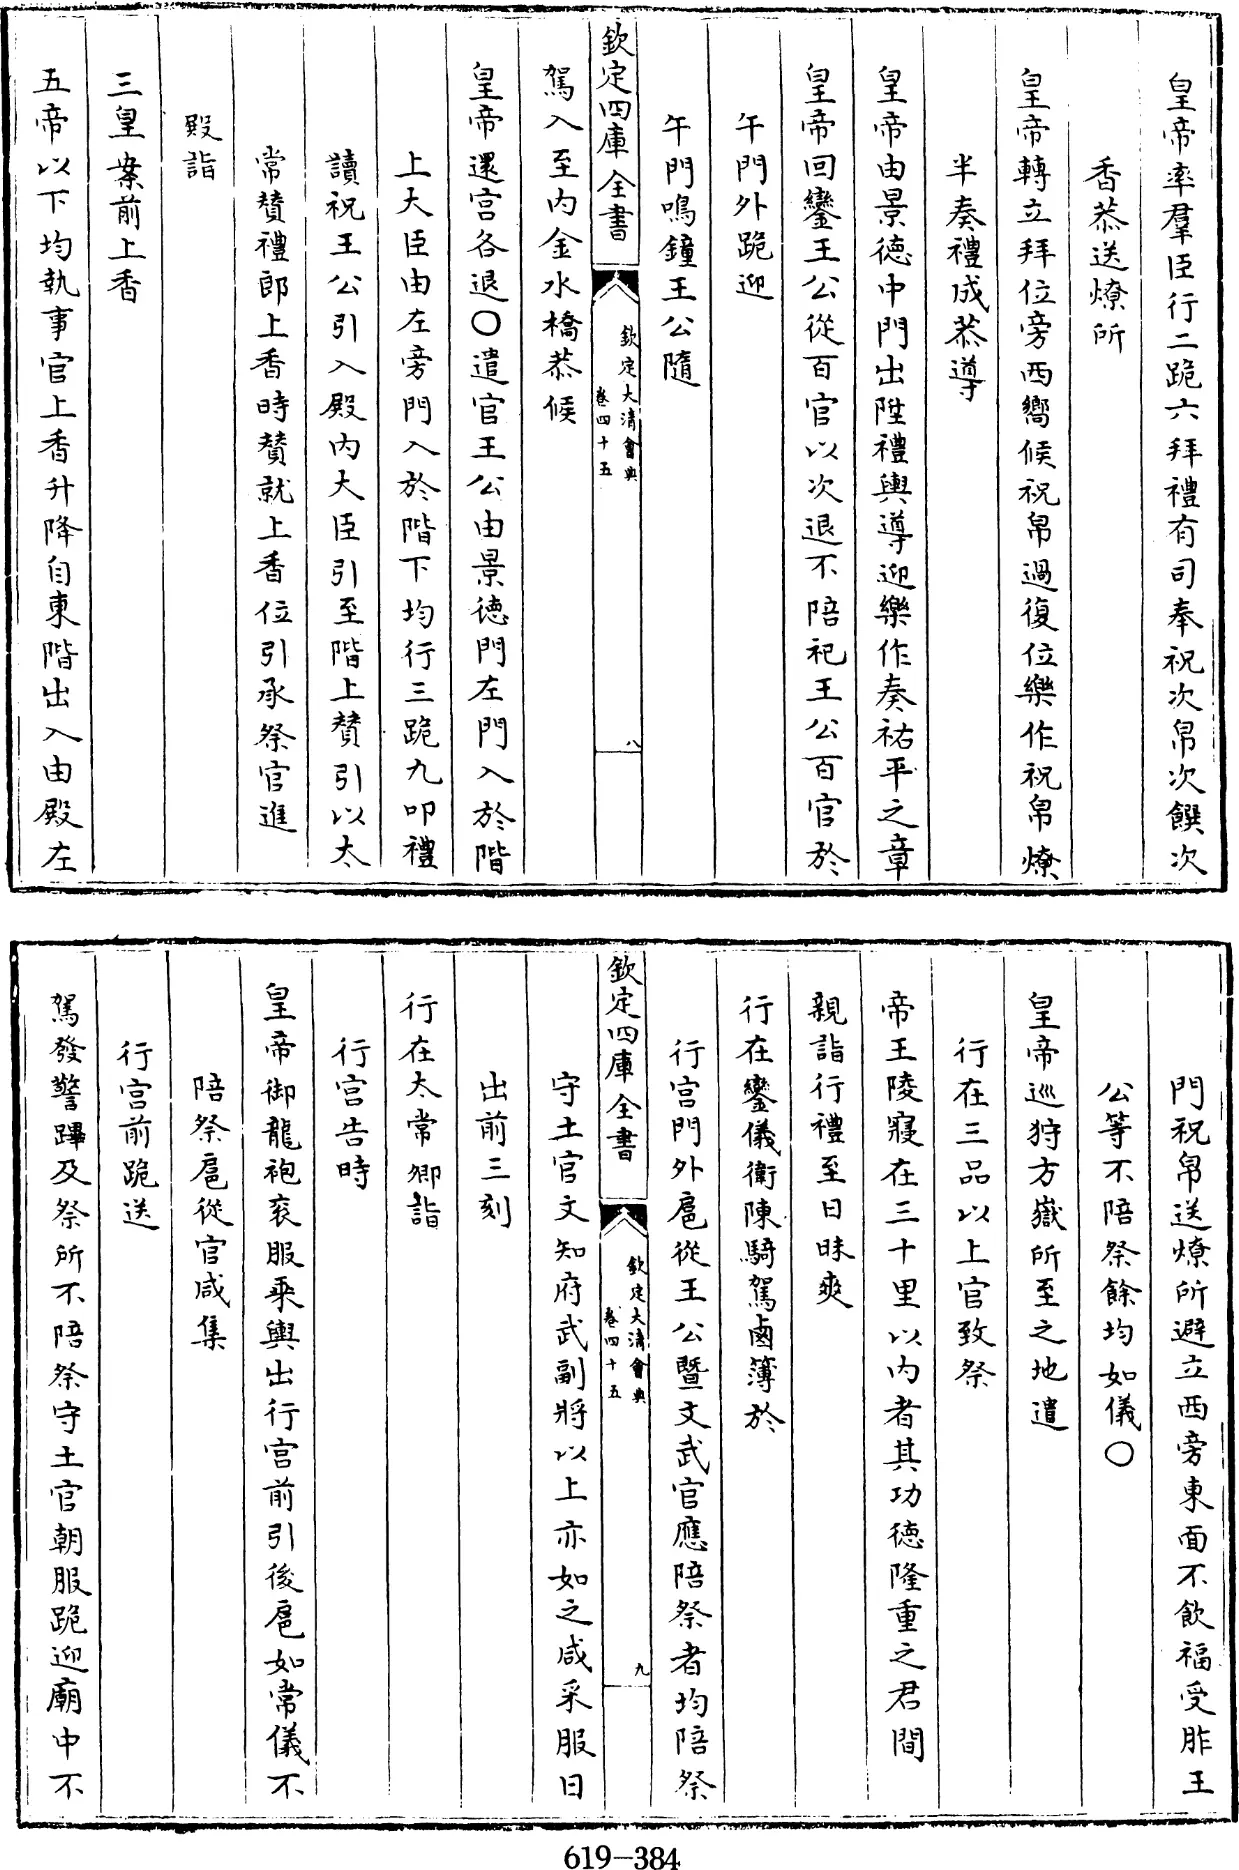 皇帝率羣臣行二跪六拜禮有司奉祝次帛次饌次
香恭送燎所
皇帝轉立拜位旁西嚮候祝帛過復位樂作祝帛燎
半奏禮成恭導
皇帝由景德中門出陞禮輿導迎樂作奏祐平之章
皇帝回鑾王公從百官以次退不陪祀王公百官於
午門外跪迎
午門鳴鐘王公隨
欽定四庫全書
欽定大清會典
卷四十五
八
駕入至内金水橋恭候
皇帝還宫各退〇遣官王公由景德門左門入於階
上大臣由左旁門入於階下均行三跪九叩禮
讀祝王公引入殿内大臣引至階上贊引以太
常贊禮郎上香時贊就上香位引承祭官進
殿詣
三皇案前上香
五帝以下均執事官上香升降自東階出入由殿左
門祝帛送燎所避立西旁東面不飲福受胙王
公等不陪祭餘均如儀〇
皇帝巡狩方嶽所至之地遣
行在三品以上官致祭
帝王陵寢在三十里以内者其功德隆重之君間
親詣行禮至日昧爽
行在鑾儀衛陳騎駕鹵簿於
行宫門外扈從王公暨文武官應陪祭者均陪祭
欽定四庫全書
欽定大清會典
卷四十五
九
守土官文知府武副將以上亦如之咸采服日
出前三刻
行在太常卿詣
行宫告時
皇帝御龍袍衮服乘輿出行宫前引後扈如常儀不
陪祭扈從官咸集
行宫前跪送
駕發警蹕及祭所不陪祭守土官朝服跪迎廟中不
619-384